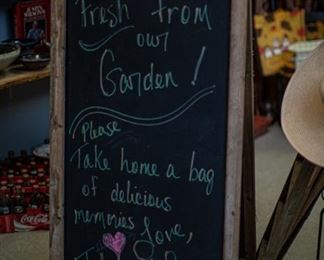 Fresh from
our
Garden!
Please
Take home a bag
of delicious
memories Love,
Coca-Cola